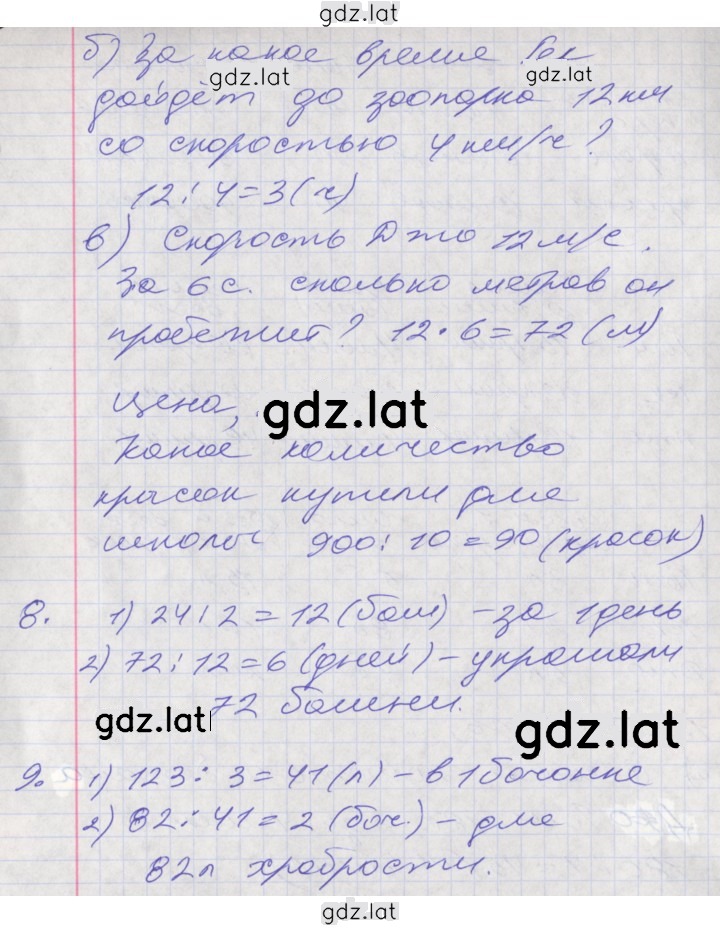 gdz.lat
б) За какое время Бек
gdz.lat gdz.lat
дойдёт до зоопарка 12 км
со скоростью 4 км/ч?
12 : 4 = 3 (ч)
в) Скорость Джо 12 м/с.
За 6 с. сколько метров он
пробежит? 12 · 6 = 72 (м)
Цена,
gdz.lat
Какое количество
красок купили для
школы 900 : 10 = 90 (красок)
8. 1) 24 : 2 = 12 (баш) – за 1 день
2) 72 : 12 = 6 (дней) – украшали
72 башни.
gdz.lat gdz.lat
9. 1) 123 : 3 = 41 (л) – в 1 бочонке
2) 82 : 41 = 2 (боч.) – для
82 л храбрости.
gdz.lat